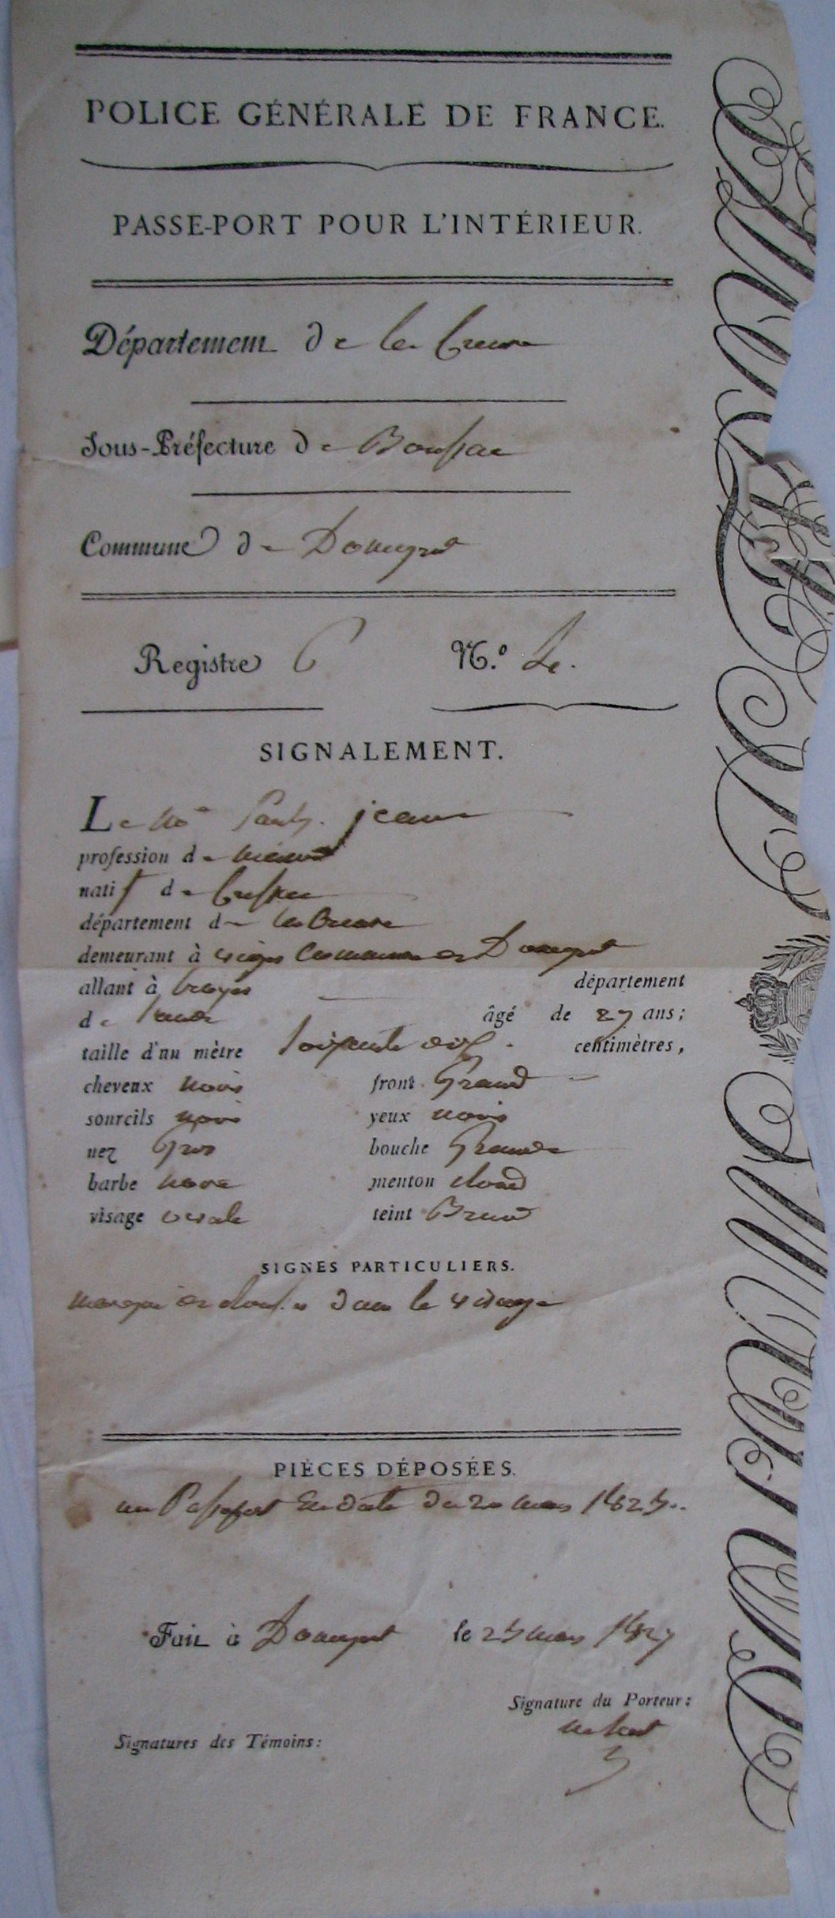 POLICE GÉNÉRALE DE FRANCE.
PASSE-PORT POUR L'INTÉRIEUR.
Département de la Creuse
Sous-Préfecture de Boussac
Commune de Domeyrot
Registre 6 N.º
SIGNALEMENT.
Le Jean
profession de
natif de
département de la Creuse
demeurant à commune de Domeyrot
allant à Troyes département
de âgé de 27 ans;
taille d'un mètre soixante centimètres,
cheveux noirs front Grand
sourcils noirs yeux noirs
nez Gros bouche Grande
barbe noire menton rond
visage ovale teint Brun
SIGNES PARTICULIERS.
marqué de dans le visage
PIÈCES DÉPOSÉES.
un Passeport en date du 20 mars
Fait à Domeyrot le mars 1827
Signature du Porteur:
Signatures des Témoins: